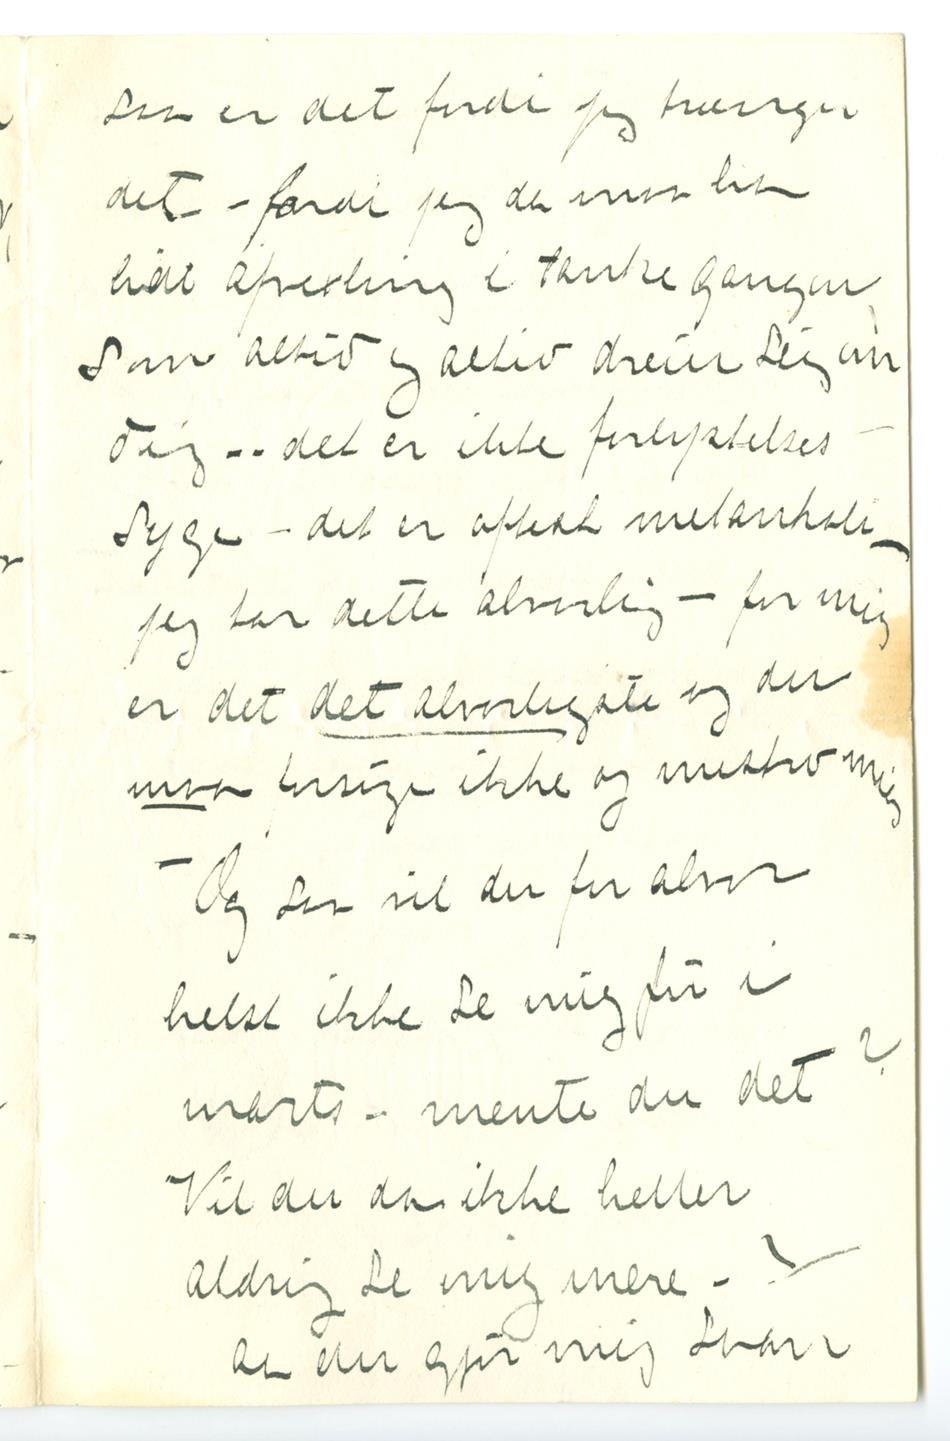 saa er det fordi jeg trænger
det – fordi jeg da maa ha
lidt afvexling i tankegangen
som altid og altid dreier seig om
dig -- det er ikke forlystelses–
syge – det er oftest melankoli –
jeg tar dette alvorlig – for mig
er det det alvorligste og du
maa ikke og mistro mig
– Og saa vil du for alvor
helst ikke se mig før i
marts – mente du det ?
Vil du da ikke heller
aldrig se mig mere – ?
du gjør mig